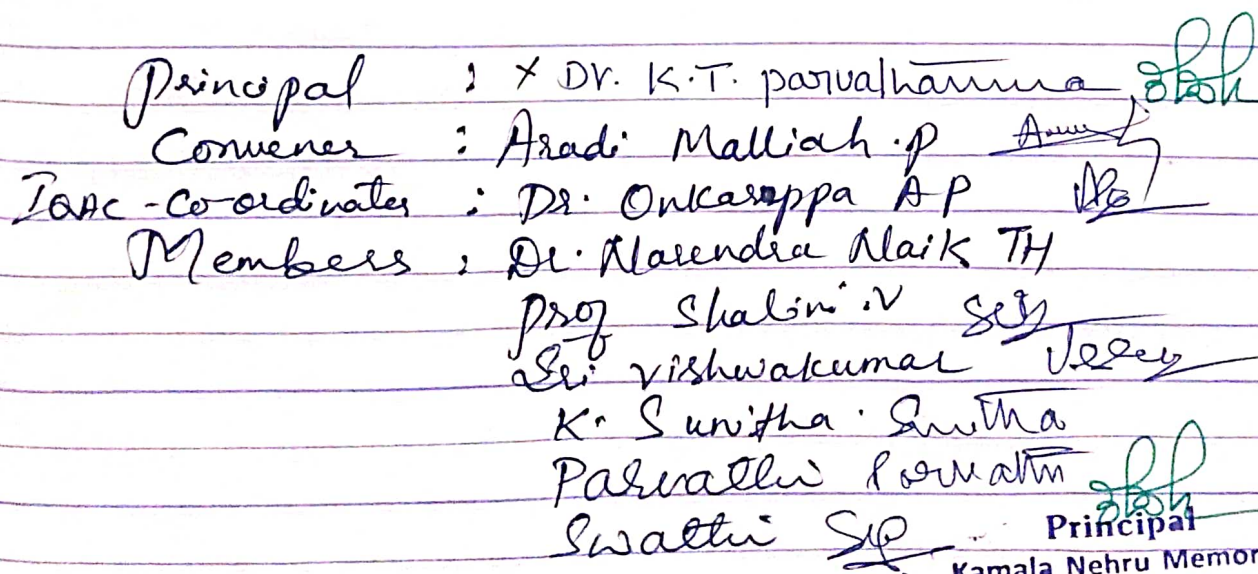 Principal : x Dr. K.T. parvathamma
Convener : Aradi Malliah .p
IQAC - Co-ordinator : Dr. Onkarappa A P
Members : Dr. Narendra Naik TH
Prof Shalini .V
Sri vishwakumar
K. Sunitha . Sunitha
Parvathi Parvathi
Swathi
Principal
Kamala Nehru Memor